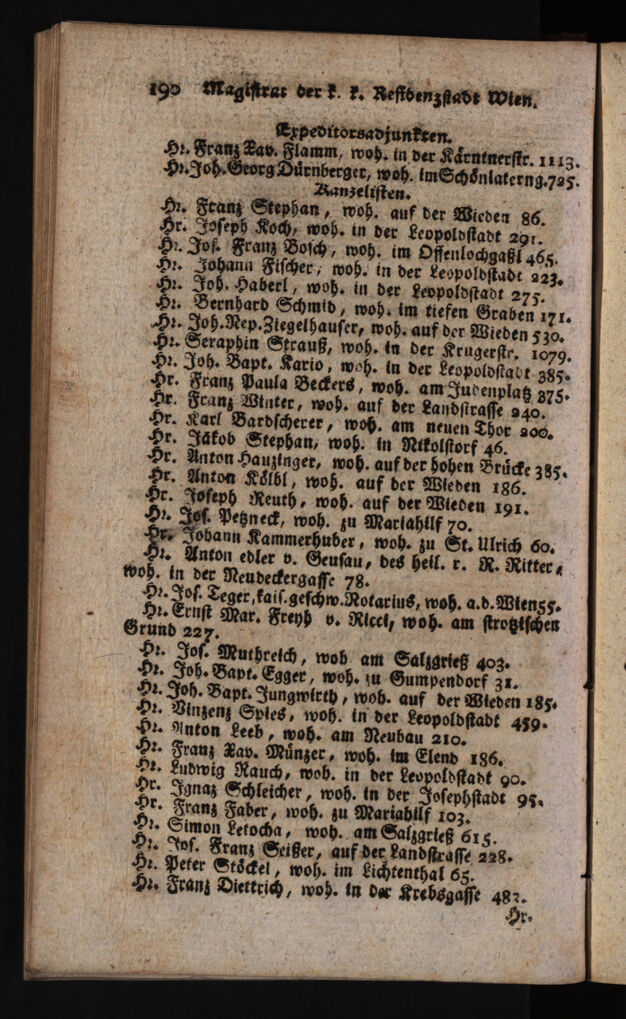 190 Magistrat der k. k. Residenzstadt Wien.
Expeditorsadjunkten.
Hr. Franz Xav. Flamm, woh. in der Kärntnerstr. 1113.
Hr. Joh. Georg Dürnberger, woh. im Schönlaterng. 725.
Kanzelisten.
Hr. Franz Stephan, woh. auf der Wieden 86.
Hr. Joseph Koch, woh. in der Leopoldstadt 291.
Hr. Jos. Franz Bosch, woh. im Offenlochgaßl 465.
Hr. Johann Fischer, woh. in der Leopoldstadt 223.
Hr. Joh. Haberl, woh. in der Leopoldstadt 275.
Hr. Bernhard Schmid, woh. im tiefen Graben 171.
Hr. Joh. Nep. Ziegelhauser, woh. auf der Wieden 530.
Hr. Seraphin Strauß, woh. in der Krugerstr. 1079.
Hr. Joh. Bapt. Kario, woh. in der Leopoldstadt 385.
Hr. Franz Paula Beckers, woh. am Judenplatz 375.
Hr. Franz Winter, woh. auf der Landstrasse 240.
Hr. Karl Bardscherer, woh. am neuen Thor 200.
Hr. Jäkob Stephan, woh. in Nikolstorf 46.
Hr. Anton Hauzinger, woh. auf der hohen Brücke 385.
Hr. Anton Kölbl, woh. auf der Wieden 186.
Hr. Joseph Reuth, woh. auf der Wieden 191.
Hr. Jos. Petzneck, woh. zu Mariahilf 70.
Hr. Johann Kammerhuber, woh. zu St. Ulrich 60.
Hr. Anton edler v. Geusau, des heil. r. R. Ritter,
woh. in der Neudeckergasse 78.
Hr. Jos. Teger, kais. geschw. Notarius, woh. a. d. Wien 55.
Hr. Ernst Mar. Freyh v. Ricci, woh. am strotzischen
Grund 227.
Hr. Jos. Muthreich, woh. am Salzgrieß 403.
Hr. Joh. Bapt. Egger, woh. zu Gumpendorf 31.
Hr. Joh. Bapt. Jungwirth, woh. auf der Wieden 185.
Hr. Vinzenz Spies, woh. in der Leopoldstadt 459.
Hr. Anton Leeb, woh. am Neubau 210.
Hr. Franz Xav. Münzer, woh. im Elend 186.
Hr. Ludwig Rauch, woh. in der Leopoldstadt 90.
Hr. Ignaz Schleicher, woh. in der Josephstadt 95.
Hr. Franz Faber, woh. zu Mariahilf 103.
Hr. Simon Letocha, woh. am Salzgrieß 615.
Hr. Jos. Franz Seißer, auf der Landstrasse 228.
Hr. Peter Stöckel, woh. im Lichtenthal 65.
Hr. Franz Diettrich, woh. in der Krebsgasse 482.
Hr.